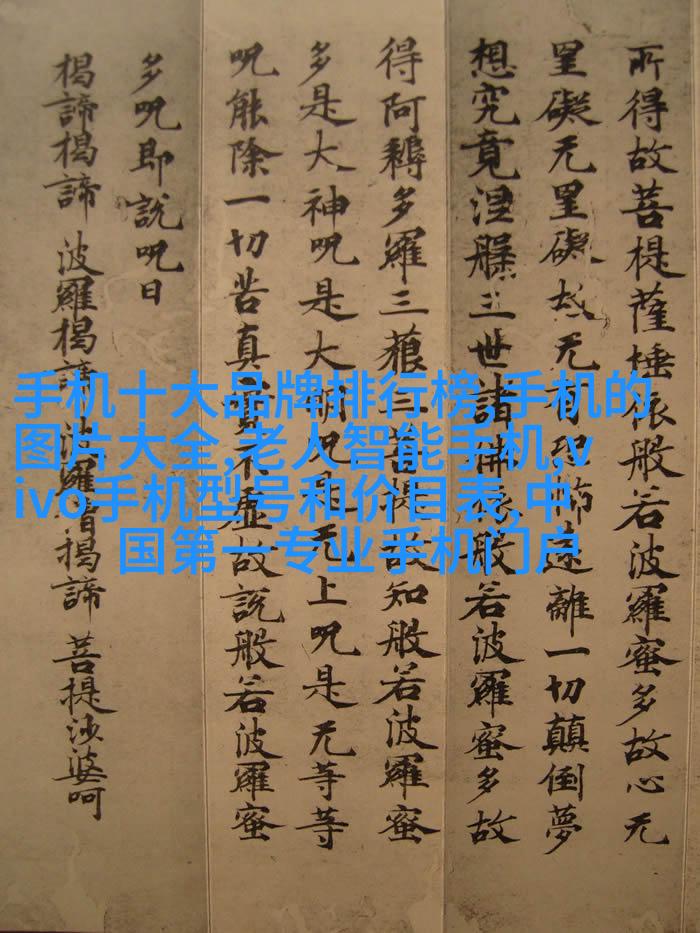 所得故菩提薩埵依般若波羅蜜多故心无
罣礙无罣礙故无有恐怖遠離一切顛倒夢
想究竟涅槃三世諸佛依般若波羅蜜多故
得阿耨多羅三藐三菩提故知般若波羅蜜
多是大神呪是大明呪是无上呪是无等等
呪能除一切苦真實不虛故說般若波羅蜜
多呪即說呪曰
揭諦揭諦 波羅揭諦 波羅僧揭諦 菩提沙婆呵
手机十大品牌排行榜,手机的
图片大全,老人智能手机,v
ivo手机型号和价目表,中
国第一专业手机门户